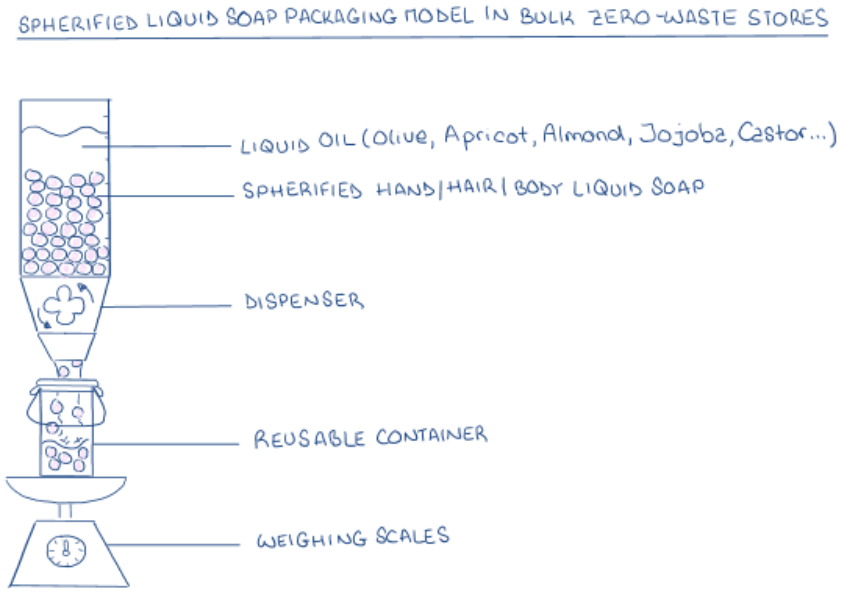 SPHERIFIED LIQUID SOAP PACKAGING MODEL IN BULK ZERO-WASTE STORES
LIQUID OIL (Olive, Apricot, Almond, Jojoba, Castor...)
SPHERIFIED HAND/HAIR/BODY LIQUID SOAP
DISPENSER
REUSABLE CONTAINER
WEIGHING SCALES